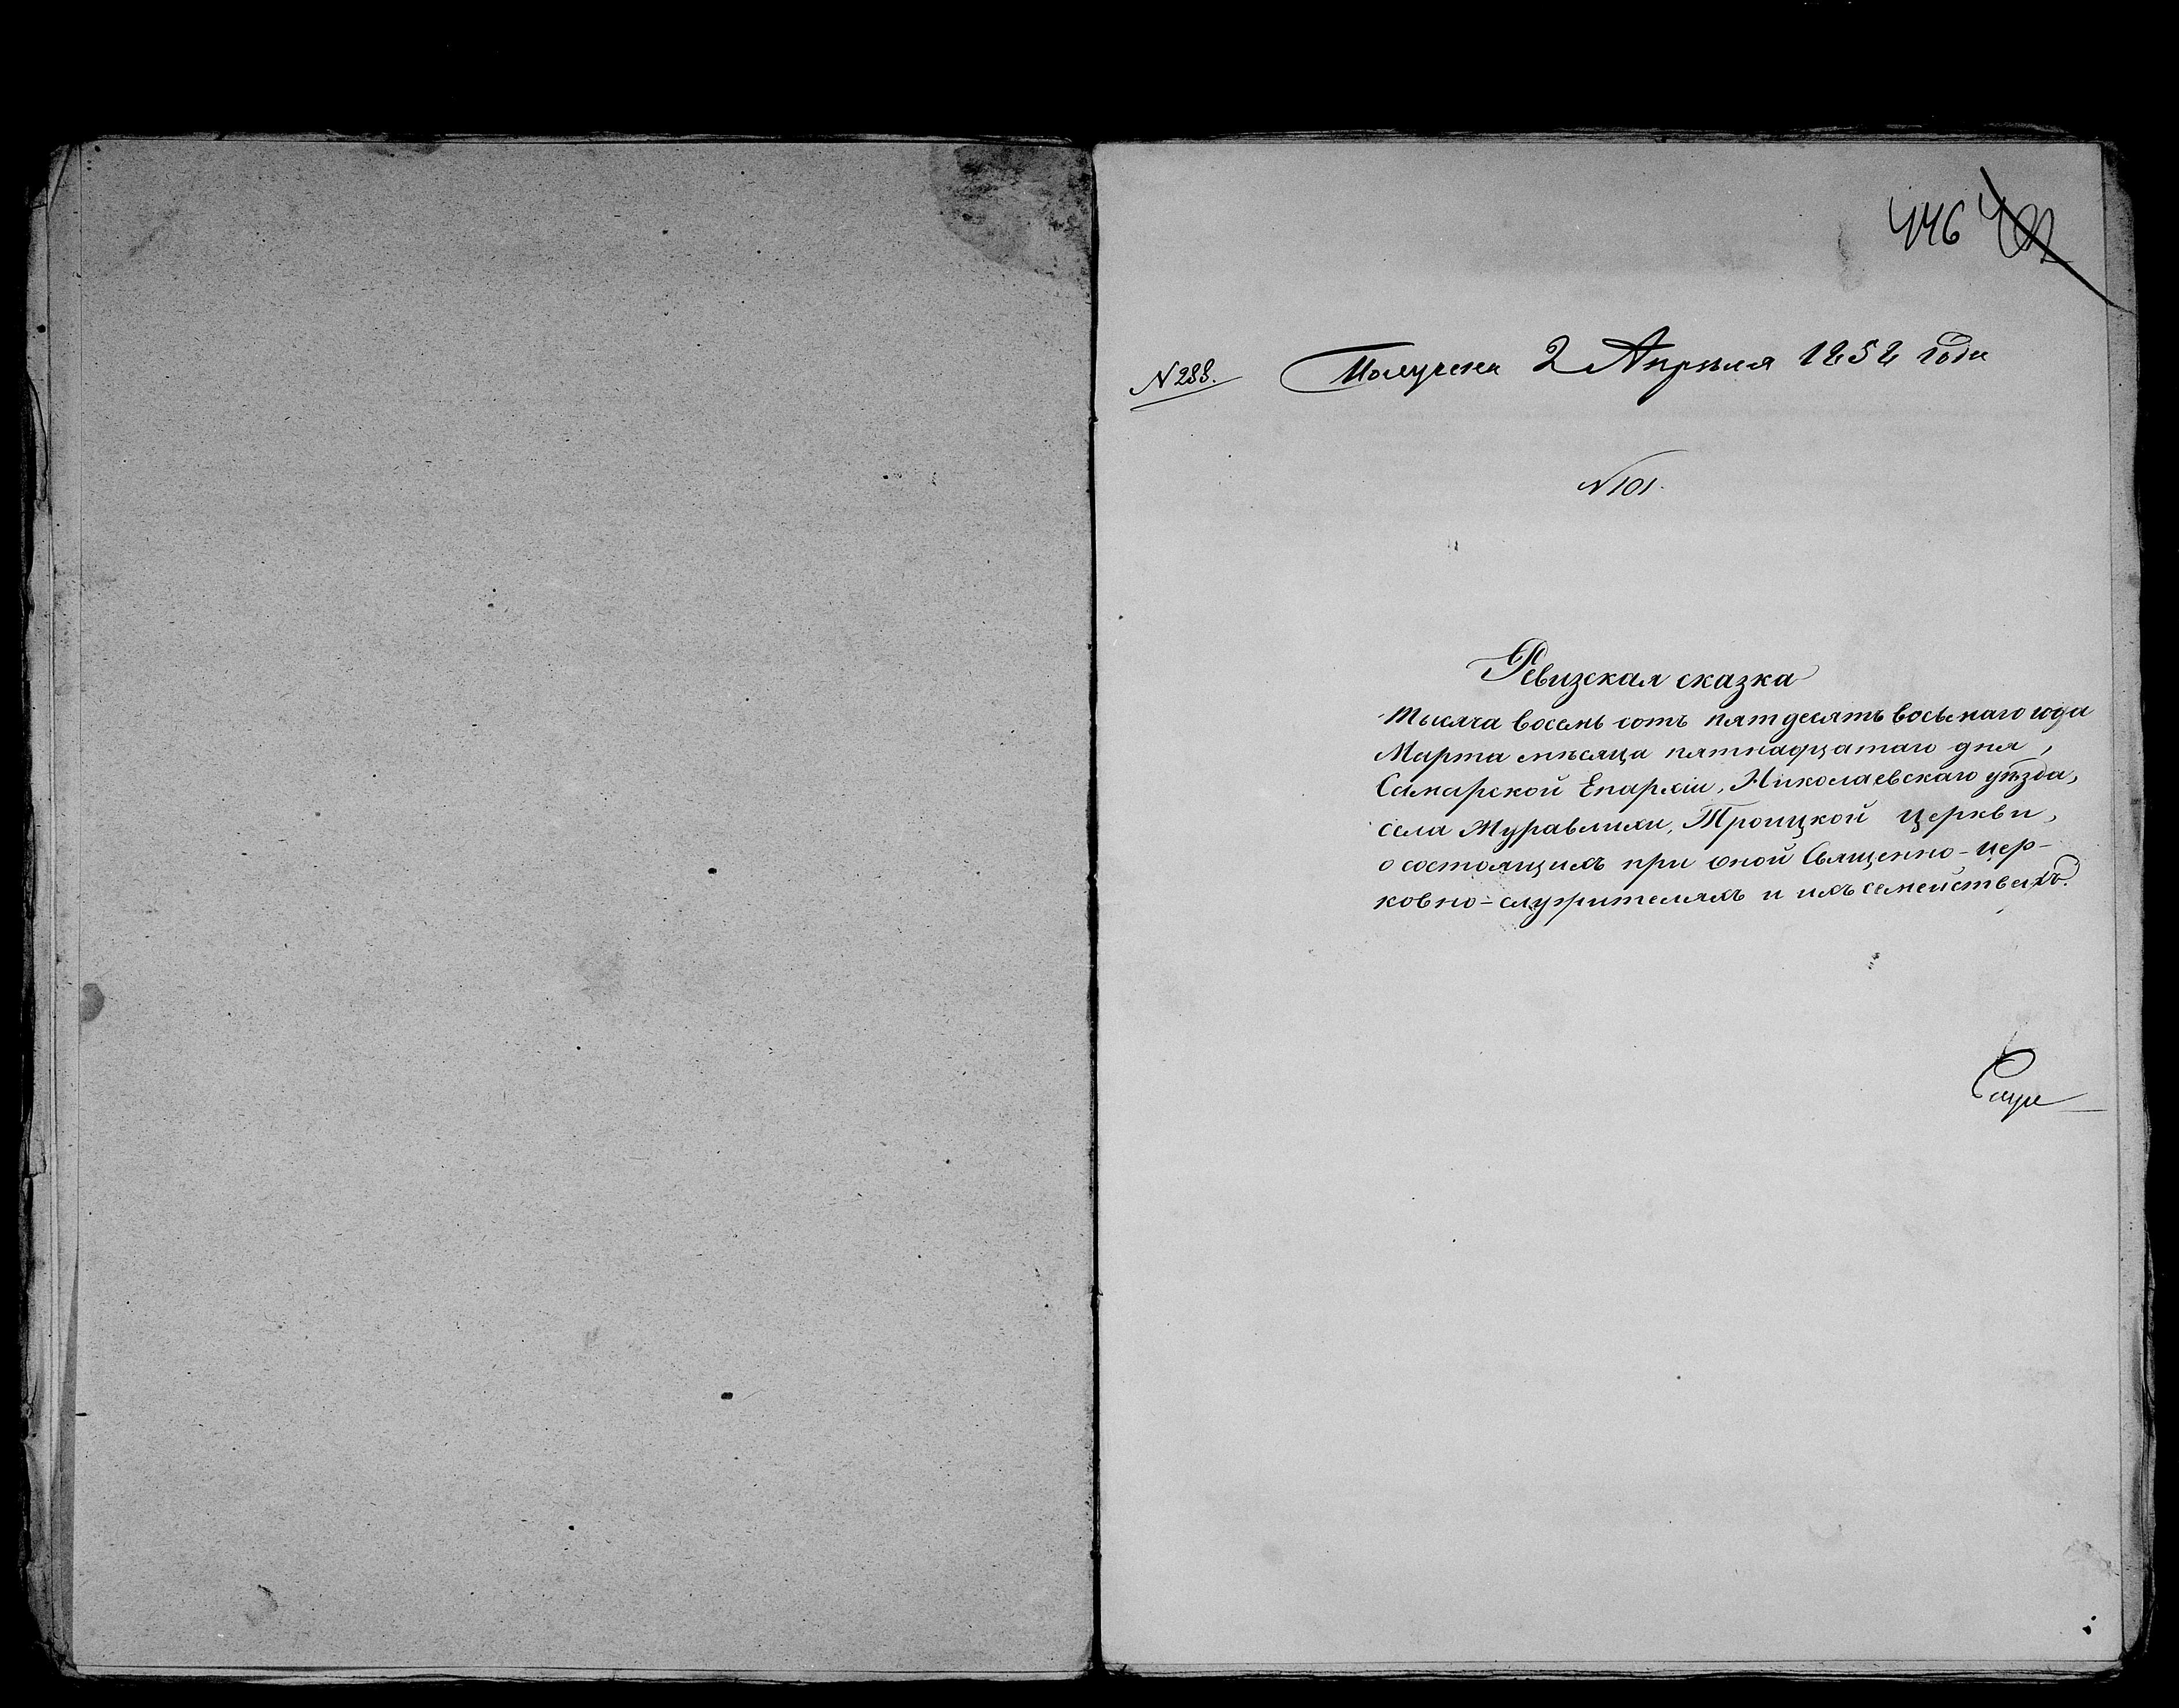 446
N 288. Получена 2 Апрѣля 1858 года
N 101.
Ревизская сказка
тысяча восемь сотъ пятдесятъ восьмаго года
Марта мѣсяца пятнадцатаго дня,
Самарской Епархіи, Николаевскаго уѣзда,
села Журавлихи, Троицкой церкви,
о состоящихъ при оной Священно-цер-
ковно-служителяхъ и ихъ семействахъ.